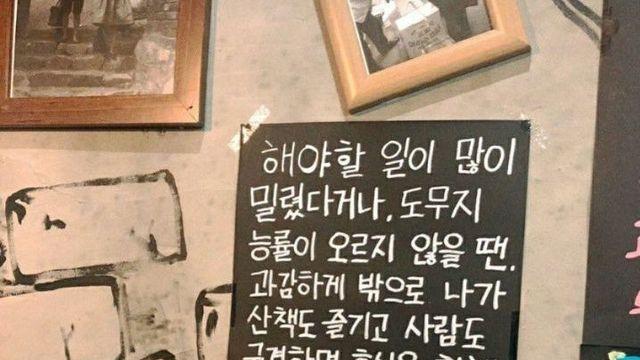 해야할 일이 많이
밀렸다거나, 도무지
능률이 오르지 않을 땐.
과감하게 밖으로 나가
산책도 즐기고 사람도